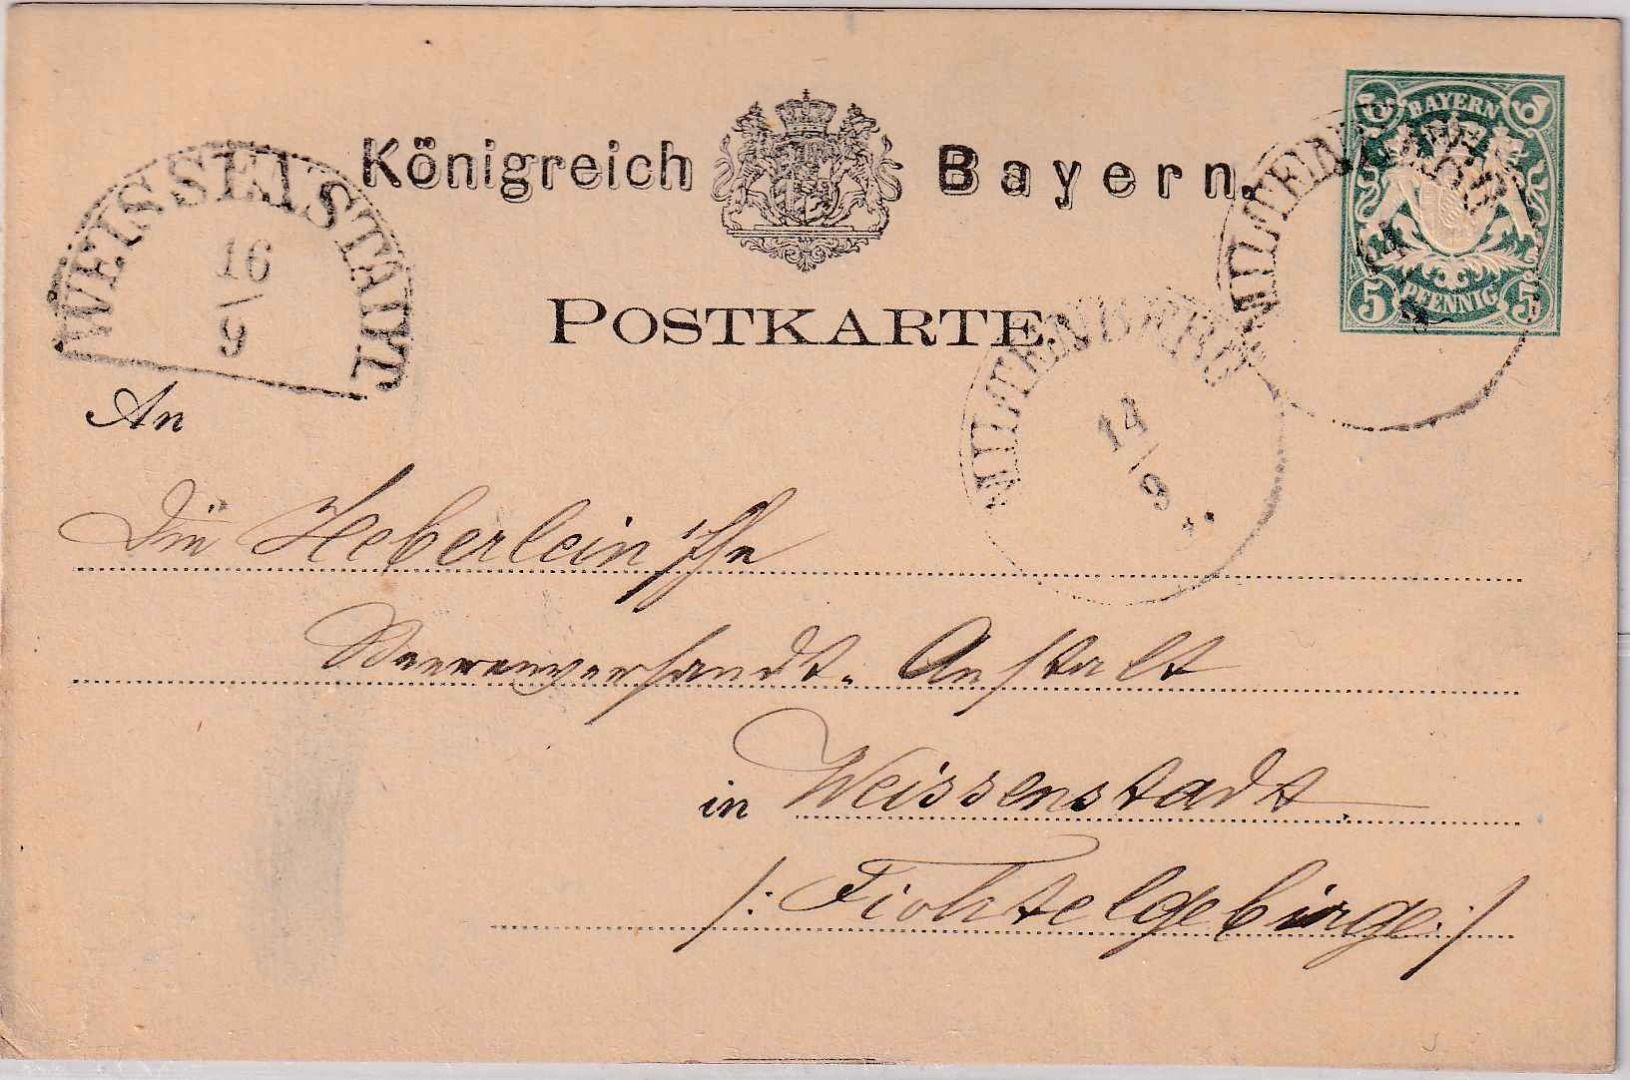 BAYERN
5 PFENNIG 5
Königreich Bayern.
POSTKARTE.
WEISSENSTADT
16
9
MILTENBERG
14
9
MILTENBERG
14
9
An
Die Heberlein'sche
Beerenversandt-Anstalt
in Weissenstadt
/: Fichtelgebirge :/